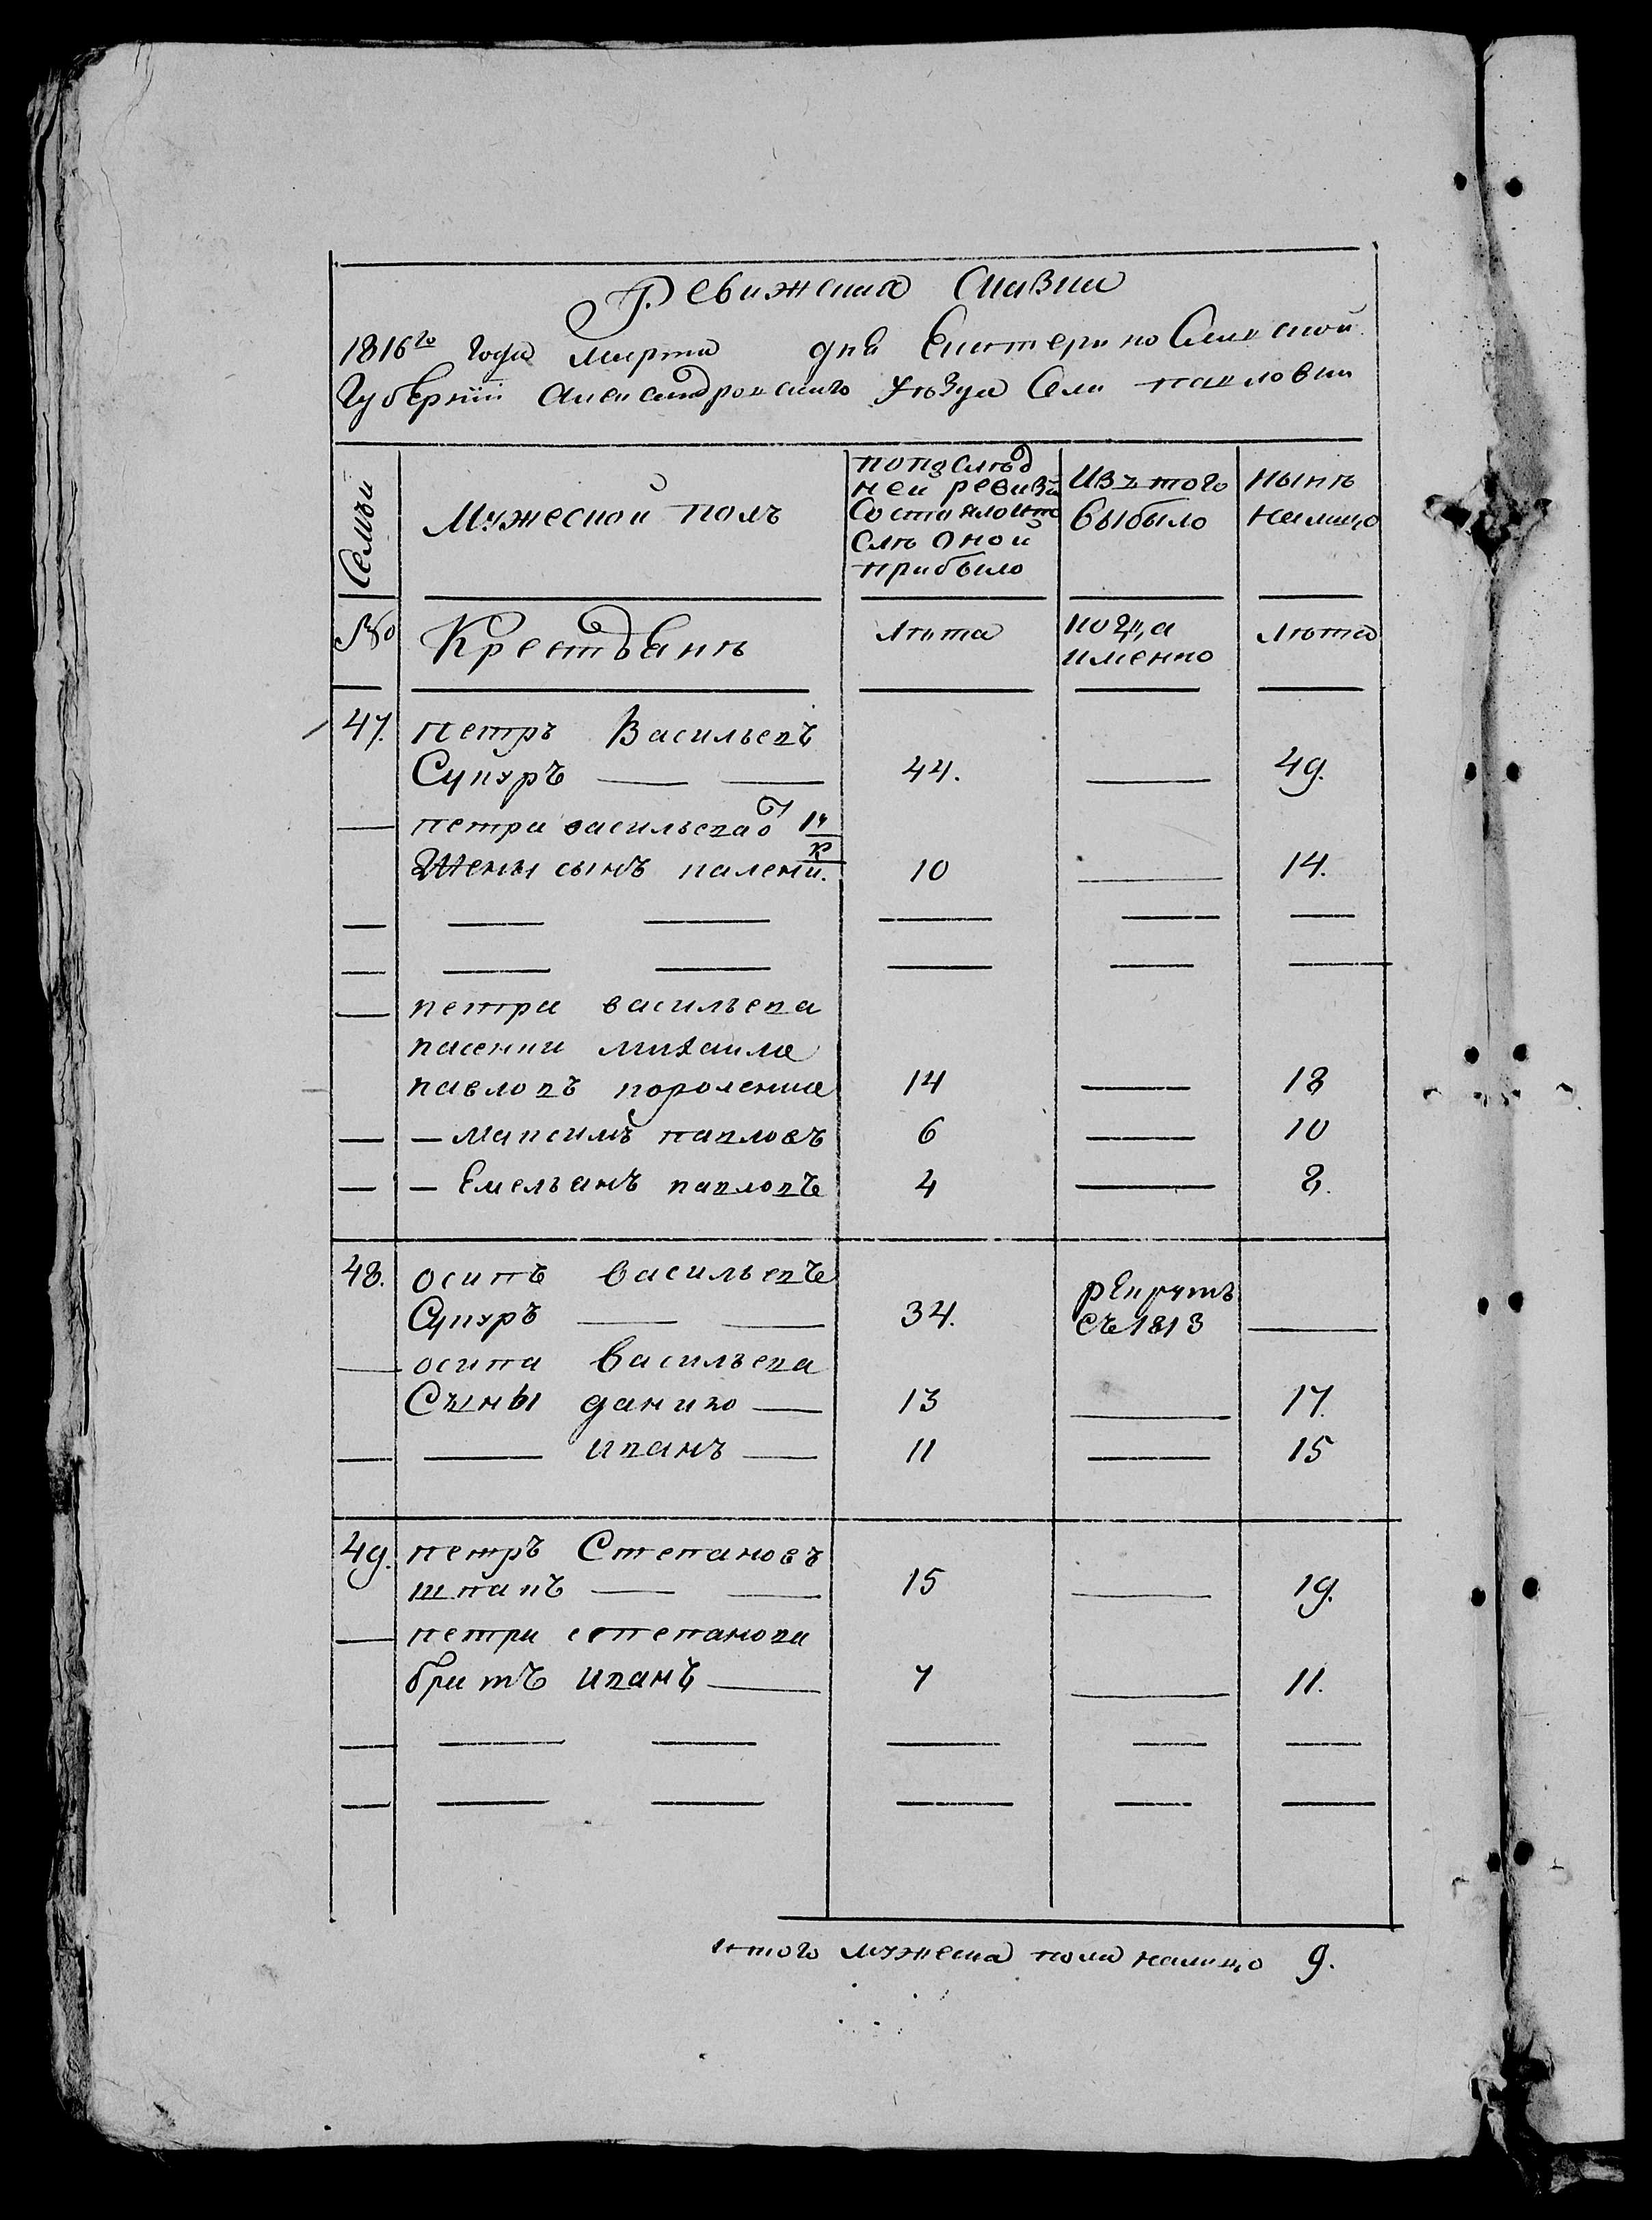 Ревижская Скаска
1816го года Марта дня Екатеринославской
Губернии Александровскаго Уѣзда Села Павловки
Семьи
Мужеской полъ
Попослѣд
ней ревизи
Состояло ипо
слѣ оной
прибыло
Изъ того
выбыло
Нынѣ
на лицо
№
Крестьянѣ
Лѣта
когда
именно
Лѣта
47. петръ Васильевъ
Сукуръ — — 44. — 49.
— петра васильева от 1й
Жены сынъ 10 — 14.
— — — — — —
— — — — — —
— петра васильева
пасенки михаила
павловъ короленко 14 — 18
— — Максимъ павловъ 6 — 10
— — Емельянъ павловъ 4 — 8.
48. осипъ васильевъ
Сукуръ — — 34. рекрутъ
съ 1813 —
— осипа васильева
Сыны данило — 13 — 17.
— — иванъ — 11 — 15
49. петръ Степановъ
шпакъ — — 15 — 19.
— петра степанова
братъ иванъ — 7 — 11.
— — — — — —
— — — — — —
итого мужеска пола налицо 9.